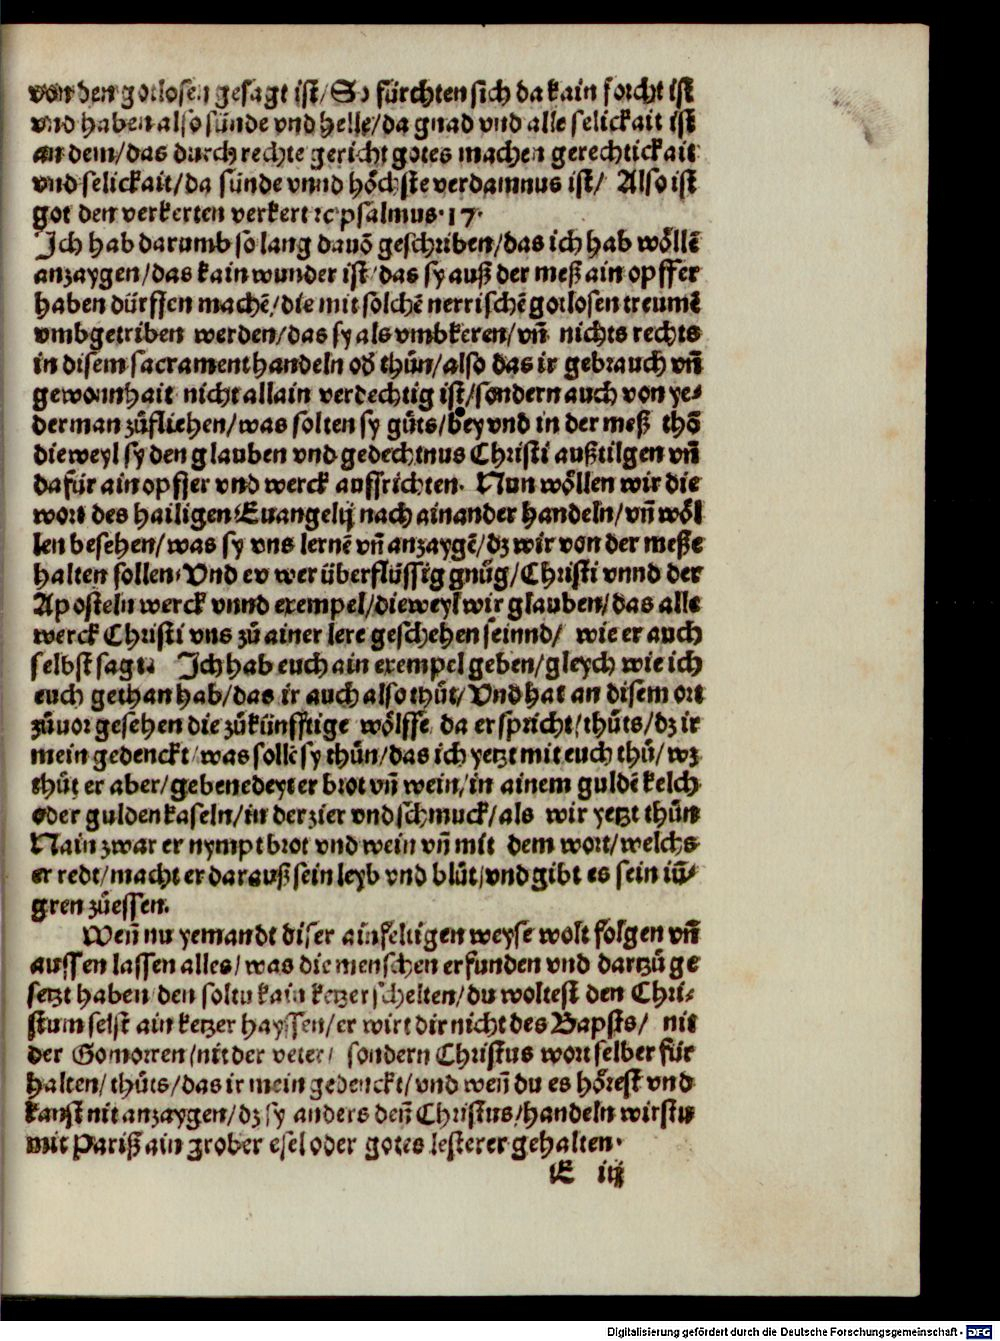 von den gotlosen gesagt ist/ So fürchten sich da kain forcht ist
vnd haben also sünde vnd helle/ da gnad vnd alle selickait ist
an dem/ das durch rechte gericht gotes machen gerechtickait
vnd selickait/ da sünde vnnd höchste verdamnus ist/ Also ist
got den verkerten verkert ⁊c psalmus·17·
Ich hab darumb so lang dauō geschriben/ das ich hab wöllē
anzaygen/ das kain wunder ist/ das sy auß der meß ain opffer
haben dürffen machē/ die mit solchē nerrischē gotlosen treumē
vmbgetriben werden/ das sy als vmbkeren/ vn̄ nichts rechts
in disem sacrament handeln od̄ thůn/ also das ir gebrauch vn̄
gewonnhait nicht allain verdechtig ist/ sondern auch von ye⸗
derman zůfliehen/ was solten sy gůts/ bey vnd in der meß thō
dieweyl sy den glauben vnd gedechtnus Christi außtilgen vn̄
dafür ain opffer vnd werck auffrichten. Nun wöllen wir die
wort des hailigen Euangelij nach ainander handeln/ vn̄ wöl
len besehen/ was sy vns lernē vn̄ anzaygē/ dz wir von der messe
halten sollen/ Vnd ev wer überflüssig gnůg/ Christi vnnd der
Aposteln werck vnnd exempel/ dieweyl wir glauben/ das alle
werck Christi vns zů ainer lere geschehen seinnd/ wie er auch
selbst sagt. Ich hab euch ain exempel geben/ gleych wie ich
euch gethan hab/ das ir auch also thůt/ Vnd hat an disem ort
zůuor gesehen die zůkünfftige wölffe da er spricht/ thůts/ dz ir
mein gedenckt/ was sollē sy thůn/ das ich yetzt mit euch thů/ wz
thůt er aber/ gebenedeyt er brot vn̄ wein/ in ainem guldē kelch
oder gulden kaseln/ in der zier vnd schmuck/ als wir yetzt thůn
Nain zwar er nympt brot vnd wein vn̄ mit dem wort/ welchs
er redt/ macht er darauß sein leyb vnd blůt/ vnd gibt es sein iū⸗
gren zůessen.
Wen̄ nu yemandt diser ainfeltigen weyse wolt folgen vn̄
aussen lassen alles/ was die menschen erfunden vnd dartzů ge
setzt haben/ den soltu kain ketzer schelten/ du woltest den Chri⸗
stum selst ain ketzer hayssen/ er wirt dir nicht des Bapsts/ nit
der Gomorren/ nit der veter/ sondern Christus wort selber für
halten/ thůts/ das ir mein gedenckt/ vnd wen̄ du es hörest vnd
kanst nit anzaygen/ dz sy anders den̄ Christus/ handeln wirstu
mit Pariß ain grober esel oder gotes lesterer gehalten·
E iij
Digitalisierung gefördert durch die Deutsche Forschungsgemeinschaft - DFG